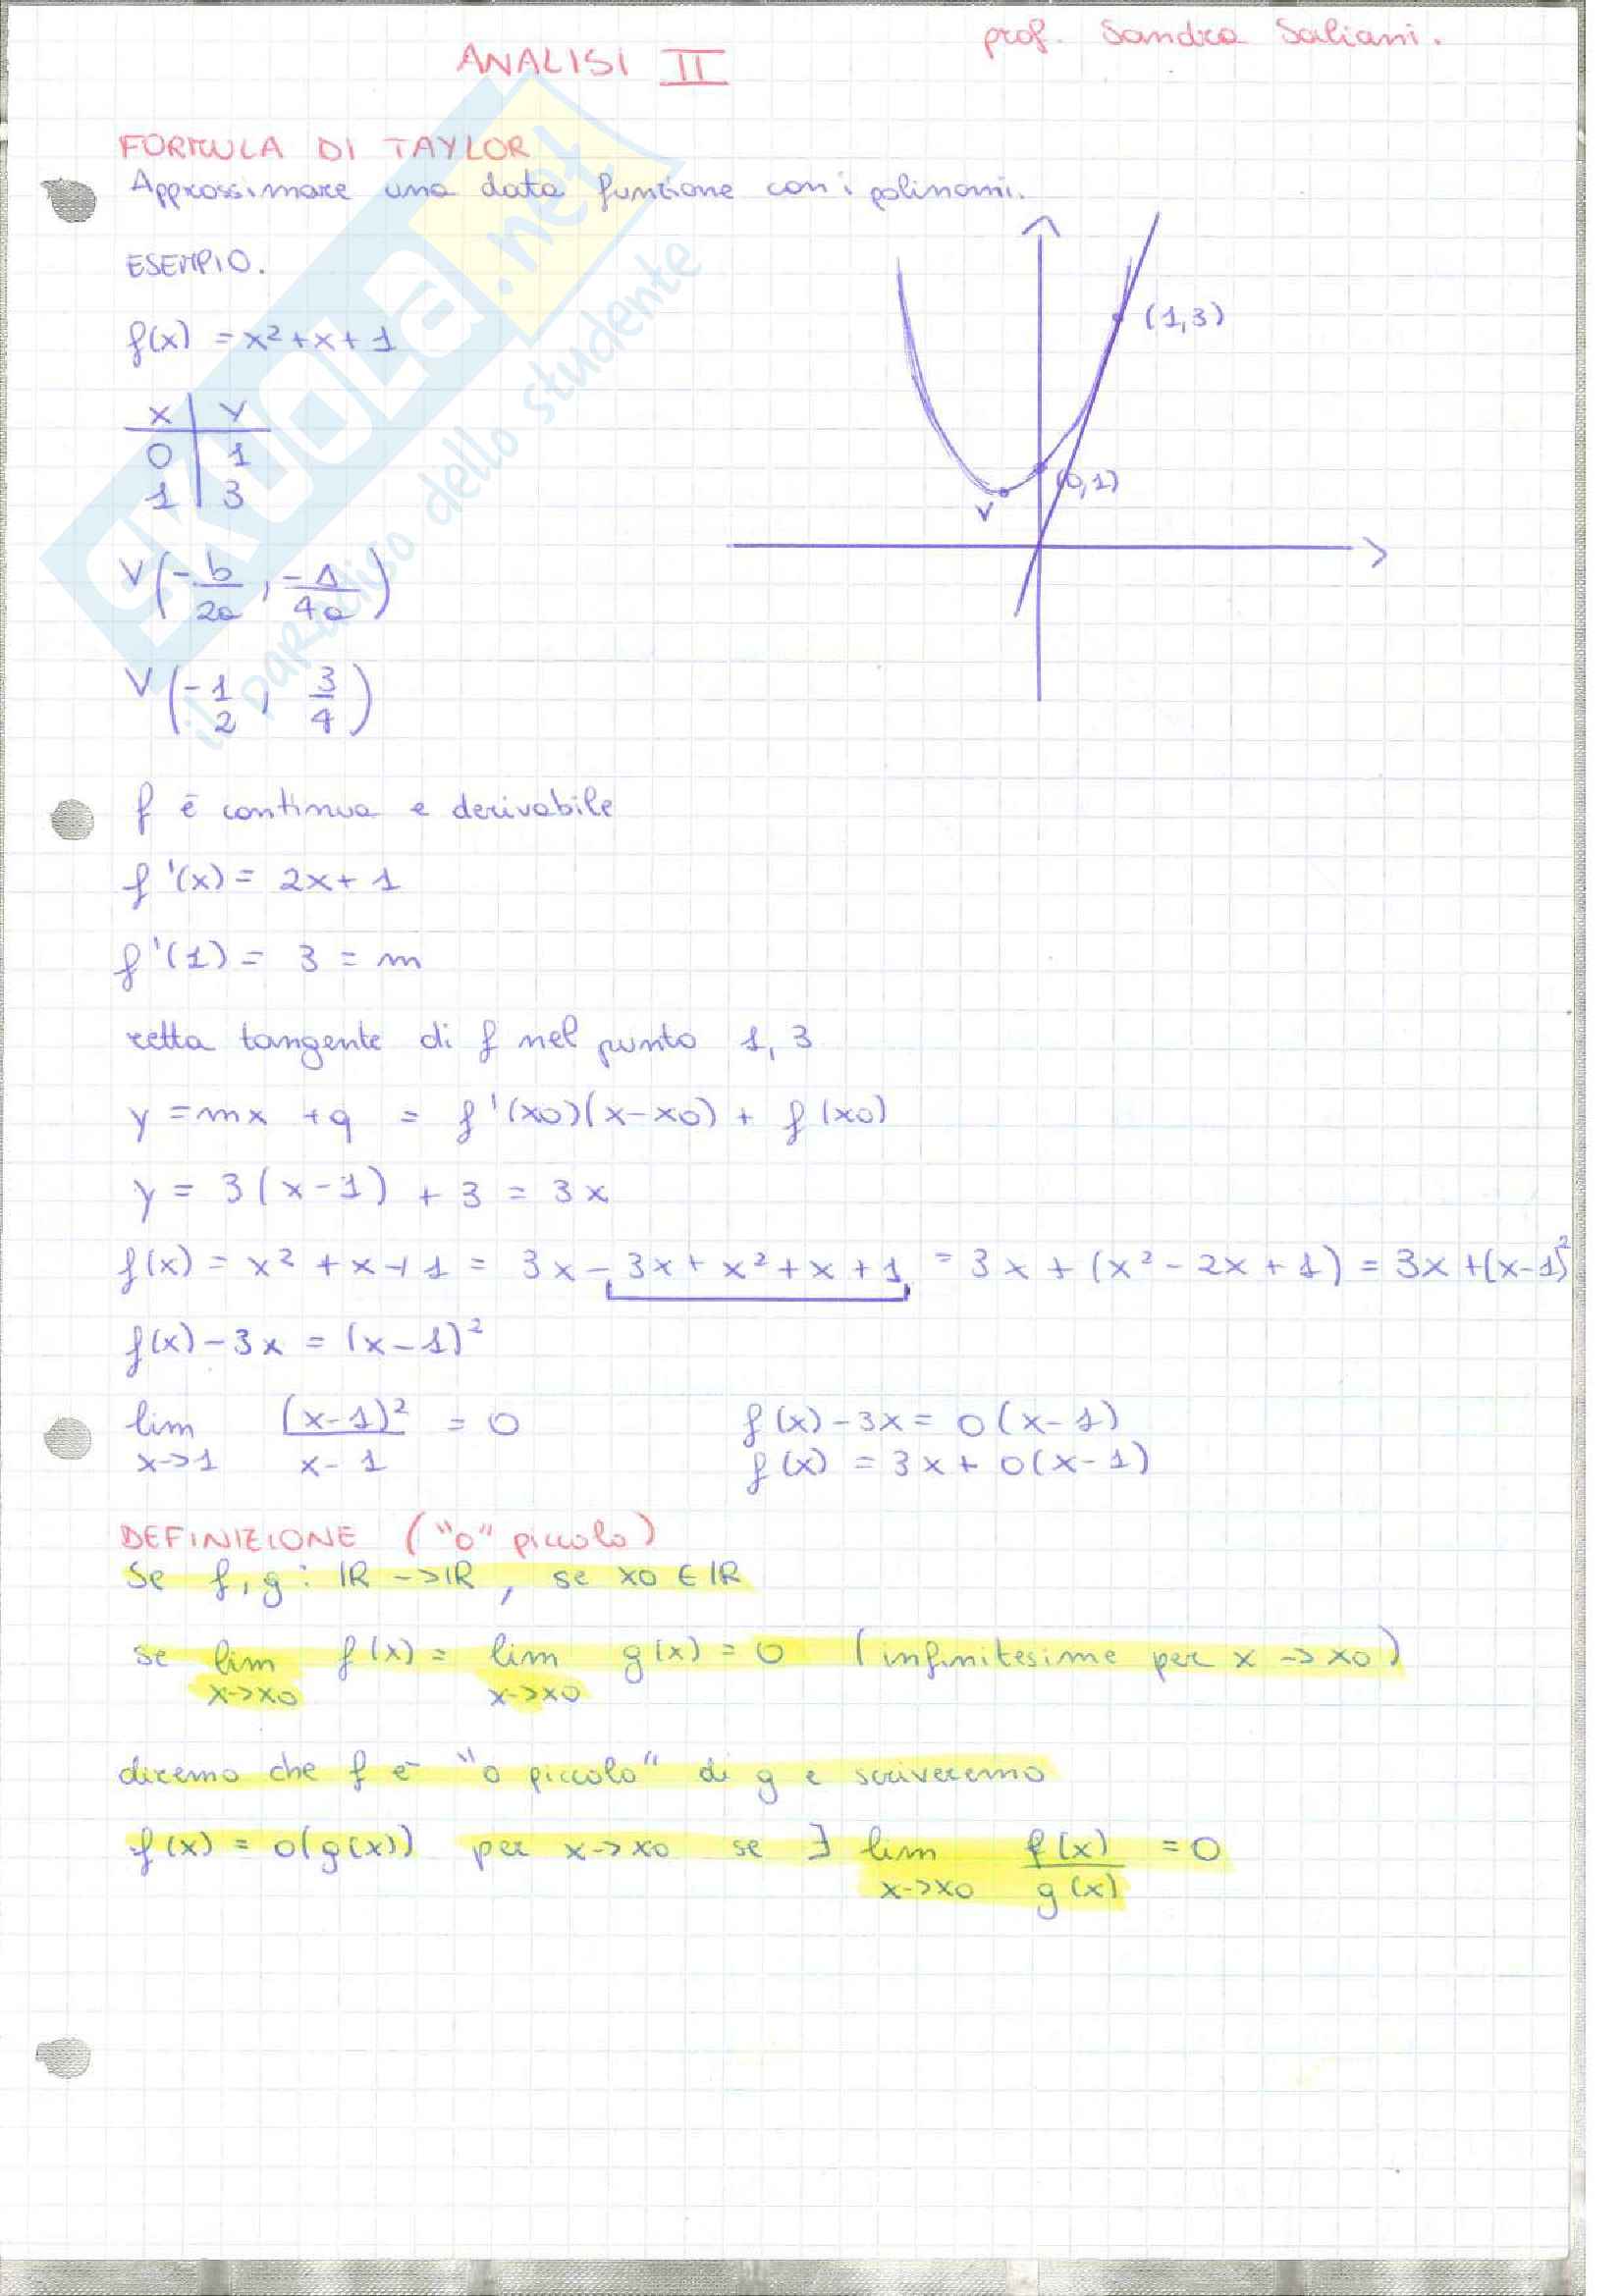 ANALISI II
prof. Sandra Saliani.
FORMULA DI TAYLOR
Approssimare una data funzione con i polinomi.
ESEMPIO.
f(x) = x² + x + 1
x | y
0 | 1
1 | 3
V(-b/2a, -Δ/4a)
V(-1/2, 3/4)
(1,3)
(0,1)
V
f è continua e derivabile
f'(x) = 2x + 1
f'(1) = 3 = m
retta tangente di f nel punto 1, 3
y = mx + q = f'(x0)(x-x0) + f(x0)
y = 3(x-1) + 3 = 3x
f(x) = x² + x + 1 = 3x - 3x + x² + x + 1 = 3x + (x² - 2x + 1) = 3x + (x-1)²
f(x) - 3x = (x-1)²
lim x->1 (x-1)²/x-1 = 0
f(x) - 3x = o(x-1)
f(x) = 3x + o(x-1)
DEFINIZIONE ("o" piccolo)
Se f, g : IR -> IR, se x0 ∈ IR
se lim x->x0 f(x) = lim x->x0 g(x) = 0 (infinitesime per x -> x0)
diremo che f è "o piccolo" di g e scriveremo
f(x) = o(g(x)) per x->x0 se ∃ lim x->x0 f(x)/g(x) = 0
SKUOLA.net
il paradiso dello studente